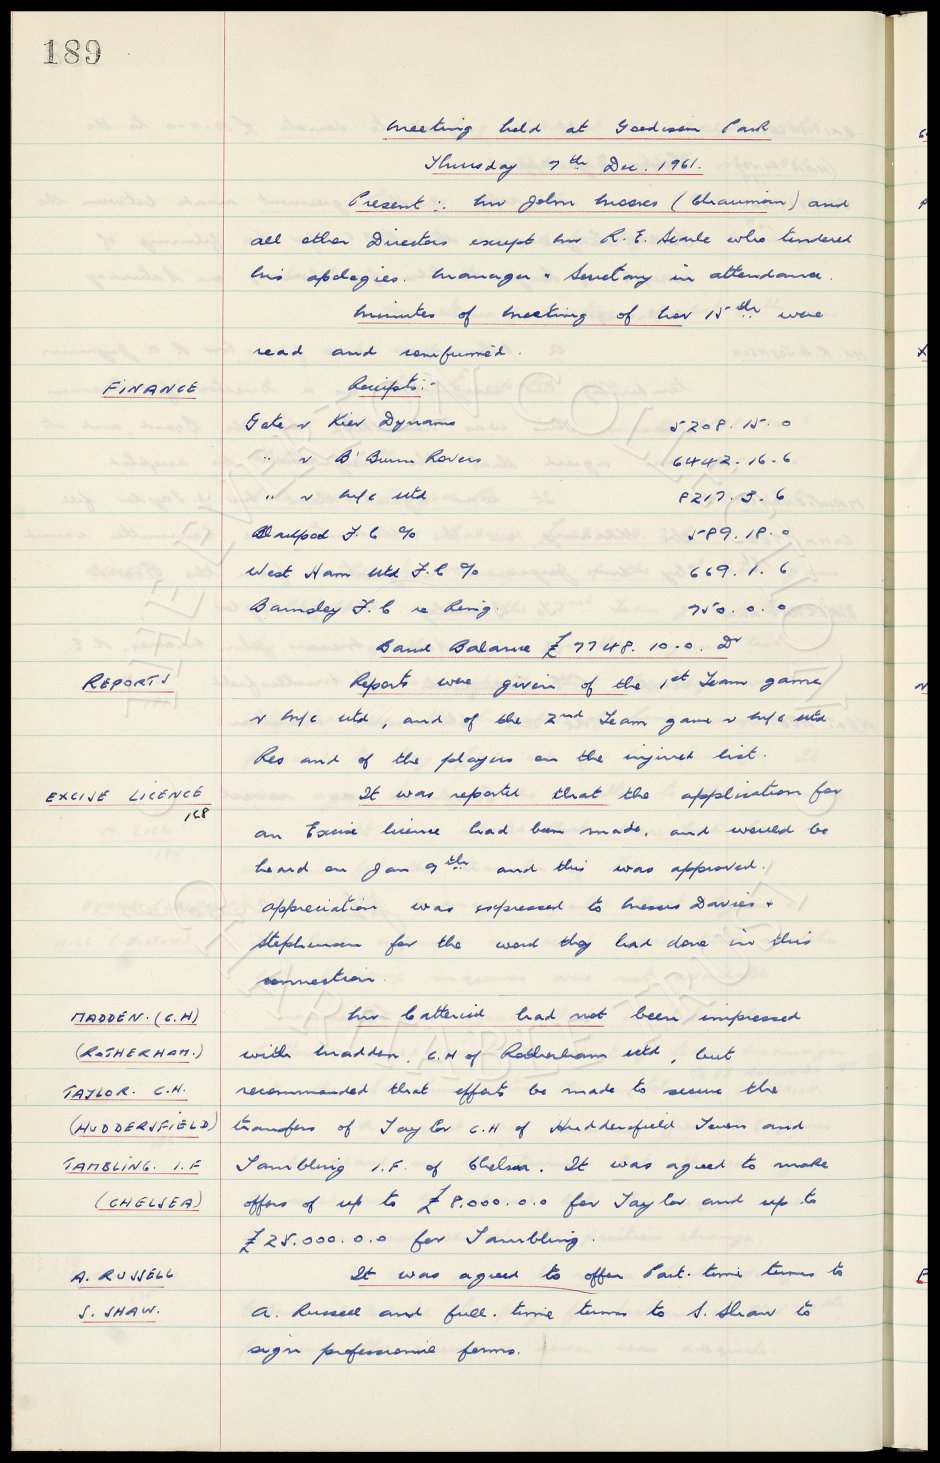 189
Meeting held at Goodison Park
Thursday 7th Dec. 1961.
Present :- Mr John Moores (Chairman) and
all other Directors except Mr R. E. Searle who tendered
his apologies. Manager & Secretary in attendance.
Minutes of Meeting of Nov 15th were
read and confirmed.
FINANCE Receipts:-
Gate v Kiev Dynamo 5208. 15. 0
" v B'Burn Rovers 6442. 16. 6
" v M/c Utd 8217. 3. 6
Blackpool F.C % 589. 18. 0
West Ham Utd F.C % 669. 1. 6
Barnsley F.C re Ring. 750. 0. 0
Bank Balance £7748. 10. 0. Dr
REPORTS Reports were given of the 1st Team game
v M/c Utd, and of the 2nd Team game v M/c Utd
Res and of the players on the injured list.
EXCISE LICENCE It was reported that the application for
168
an Excise licence had been made, and would be
heard on Jan 9th and this was approved.
Appreciation was expressed to Messrs Davies &
Stephenson for the work they had done in this
connection.
MADDEN. (C.H) Mr Catterick had not been impressed
(ROTHERHAM.) with Madden, C.H of Rotherham Utd, but
TAYLOR. C.H. recommended that efforts be made to secure the
(HUDDERSFIELD) transfers of Taylor C.H of Huddersfield Town and
TAMBLING. I.F Tambling I.F. of Chelsea. It was agreed to make
(CHELSEA) offers of up to £8.000.0.0 for Taylor and up to
£25.000.0.0 for Tambling.
A. RUSSELL It was agreed to offer Part-time terms to
S. SHAW. A. Russell and full-time terms to S. Shaw to
sign professional forms.